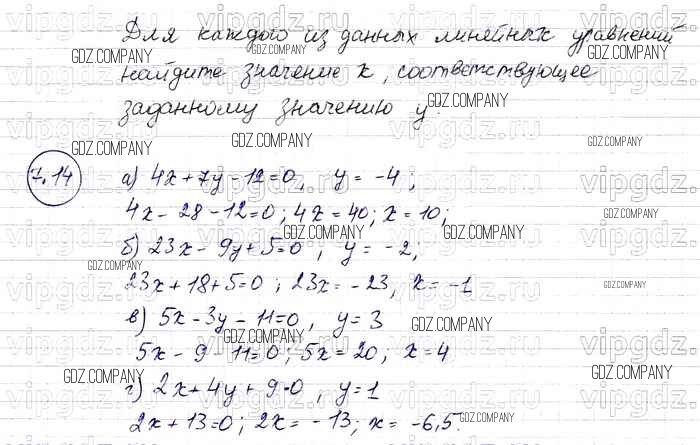 Для каждого из данных линейных уравнений
найдите значение x, соответствующее
заданному значению y.
7.14 а) 4x + 7y - 12 = 0, y = -4;
4x - 28 - 12 = 0; 4x = 40; x = 10;
б) 23x - 9y + 5 = 0, y = -2;
23x + 18 + 5 = 0; 23x = -23, x = -1
в) 5x - 3y - 11 = 0, y = 3
5x - 9 - 11 = 0; 5x = 20; x = 4
г) 2x + 4y + 9 = 0, y = 1
2x + 13 = 0; 2x = -13; x = -6,5.
GDZ.COMPANY
vipgdz.ru